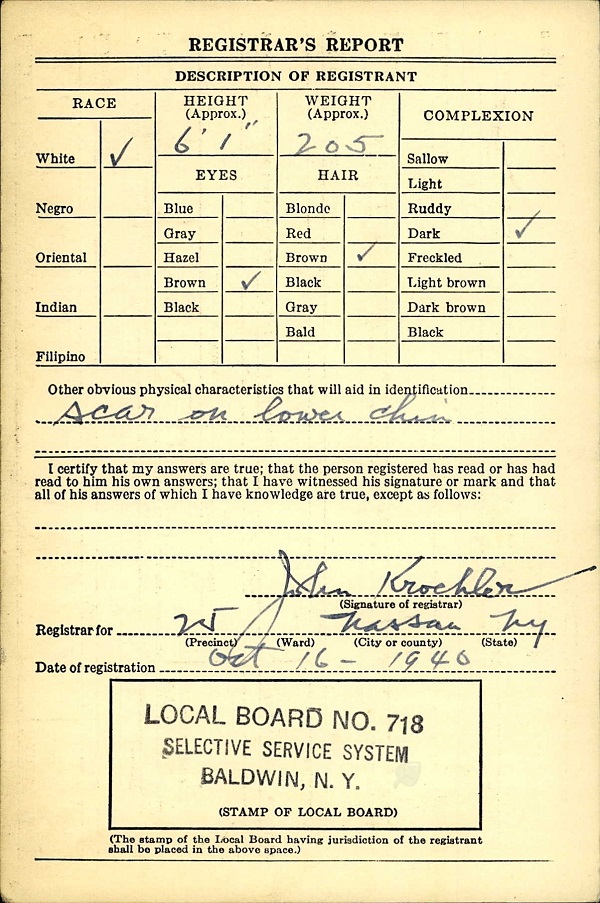 REGISTRAR'S REPORT
DESCRIPTION OF REGISTRANT
RACE
HEIGHT
(Approx.)
6' 1"
WEIGHT
(Approx.)
205
COMPLEXION
White ✓
Negro
Oriental
Indian
Filipino
EYES
Blue
Gray
Hazel
Brown ✓
Black
HAIR
Blonde
Red
Brown ✓
Black
Gray
Bald
Sallow
Light
Ruddy
Dark ✓
Freckled
Light brown
Dark brown
Black
Other obvious physical characteristics that will aid in identification
scar on lower chin
I certify that my answers are true; that the person registered has read or has had
read to him his own answers; that I have witnessed his signature or mark and that
all of his answers of which I have knowledge are true, except as follows:
John Kroehler
(Signature of registrar)
Registrar for Nassau NY
(Precinct) (Ward) (City or county) (State)
Date of registration Oct 16 - 1940
LOCAL BOARD NO. 718
SELECTIVE SERVICE SYSTEM
BALDWIN, N. Y.
(STAMP OF LOCAL BOARD)
(The stamp of the Local Board having jurisdiction of the registrant
shall be placed in the above space.)